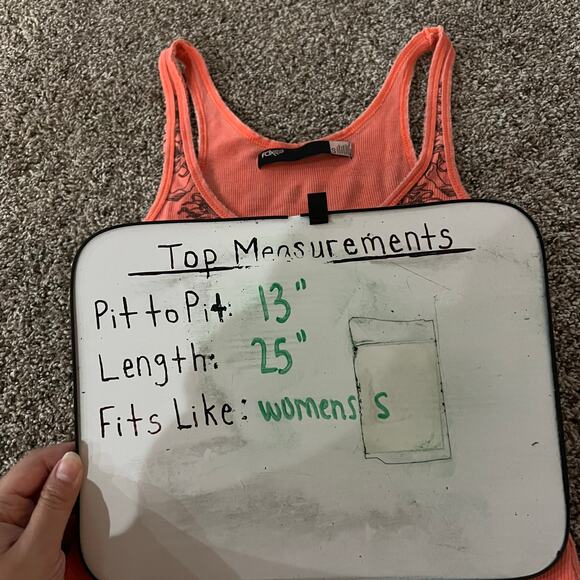 FOX
S
Top Measurements
Pit to Pit: 13"
Length: 25"
Fits Like: womens S